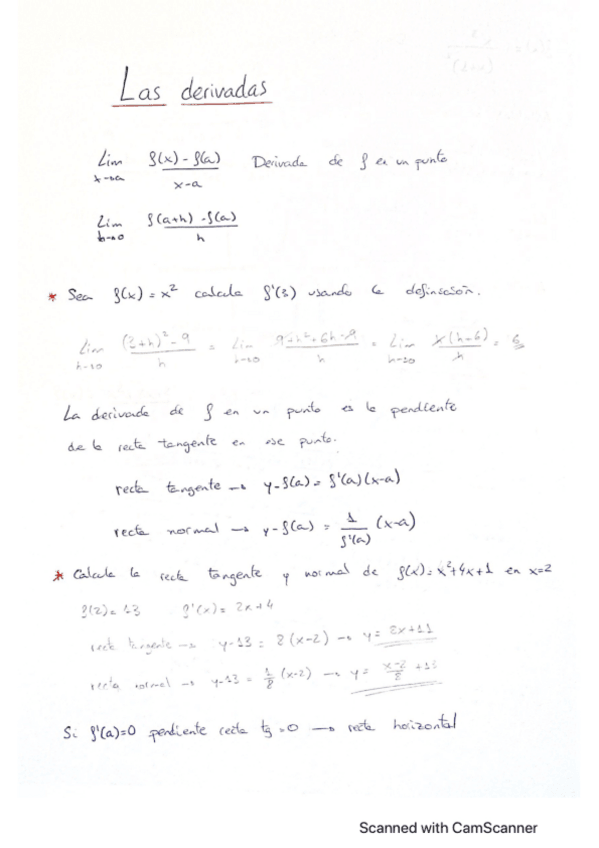 Las derivadas
Lim x→a f(x) - f(a) / x-a Derivada de f en un punto
Lim h→0 f(a+h) - f(a) / h
* Sea f(x) = x² calcula f'(3) usando la definición.
Lim h→0 (3+h)² - 9 / h = Lim h→0 9+h²+6h-9 / h = Lim h→0 h(h-6) / h = 6
La derivada de f en un punto es la pendiente
de la recta tangente en ese punto.
recta tangente → y-f(a) = f'(a)(x-a)
recta normal → y-f(a) = 1 / f'(a) (x-a)
* Calcula la recta tangente y normal de f(x) = x²+4x+1 en x=2
f(2) = 13 f'(x) = 2x+4
recta tangente → y-13 = 8(x-2) → y = 2x+11
recta normal → y-13 = 1/8 (x-2) → y = x-2 / 8 +13
Si f'(a)=0 pendiente recta tg = 0 → recta horizontal
Scanned with CamScanner